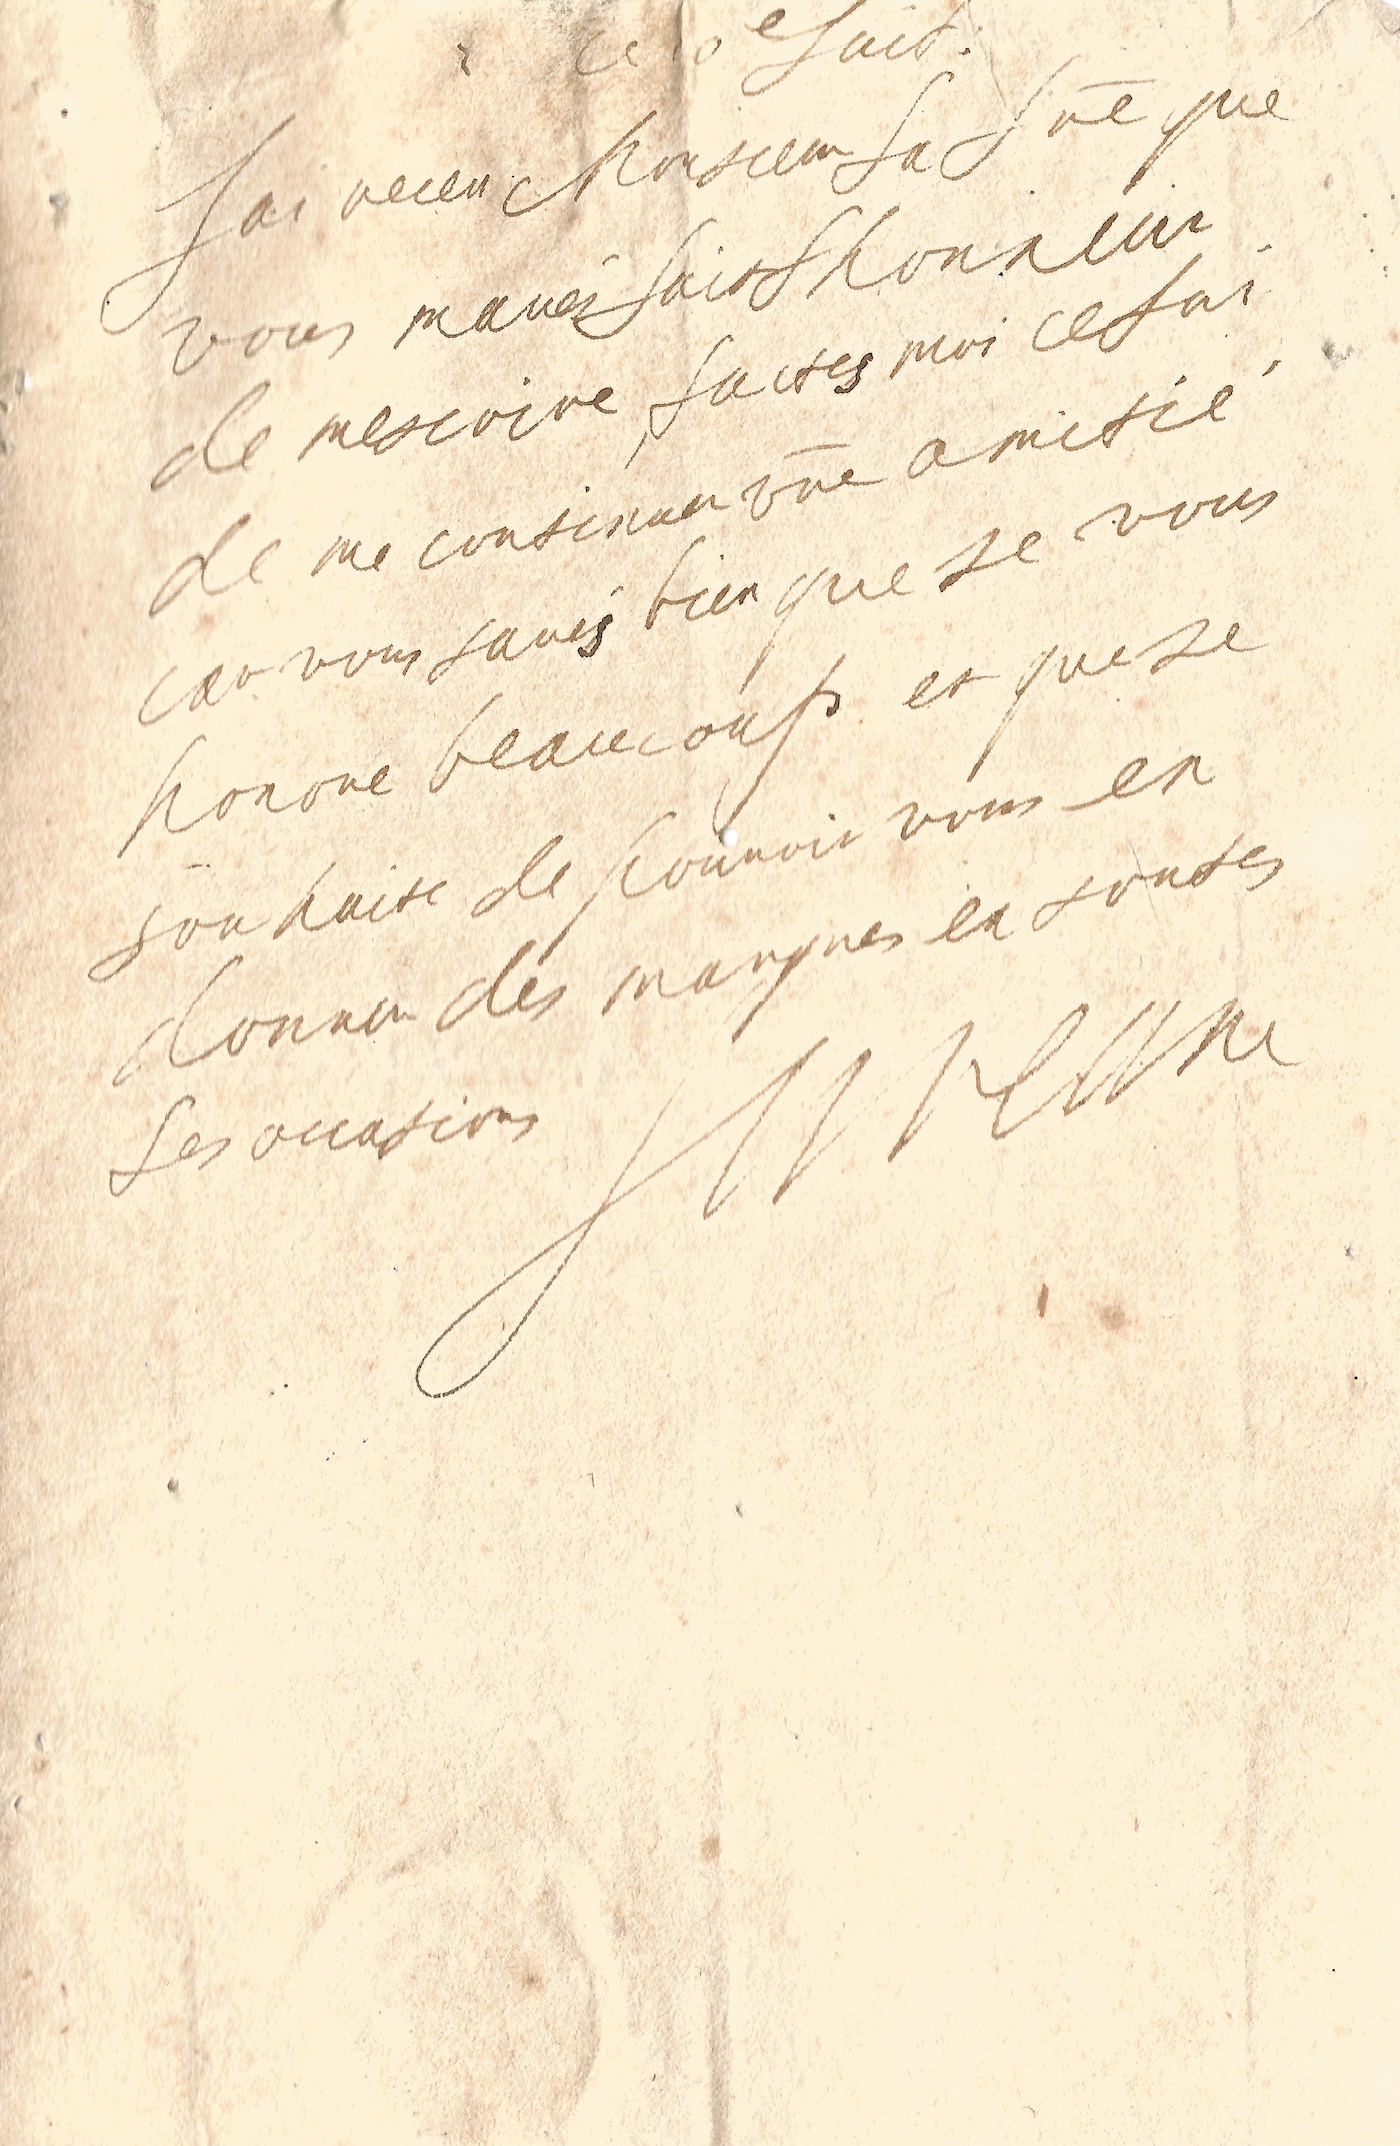 ce 10e juit.
Jai receu Monsieur la lr̄e que
vous maués fait lhonneur
de mescrire, faites moi celui
de me continuer vr̄e amitié
car vous saués bien que je vous
honore beaucoup et que je
souhaite de pouuoir vous en
donner des marques en toutes
les occasions